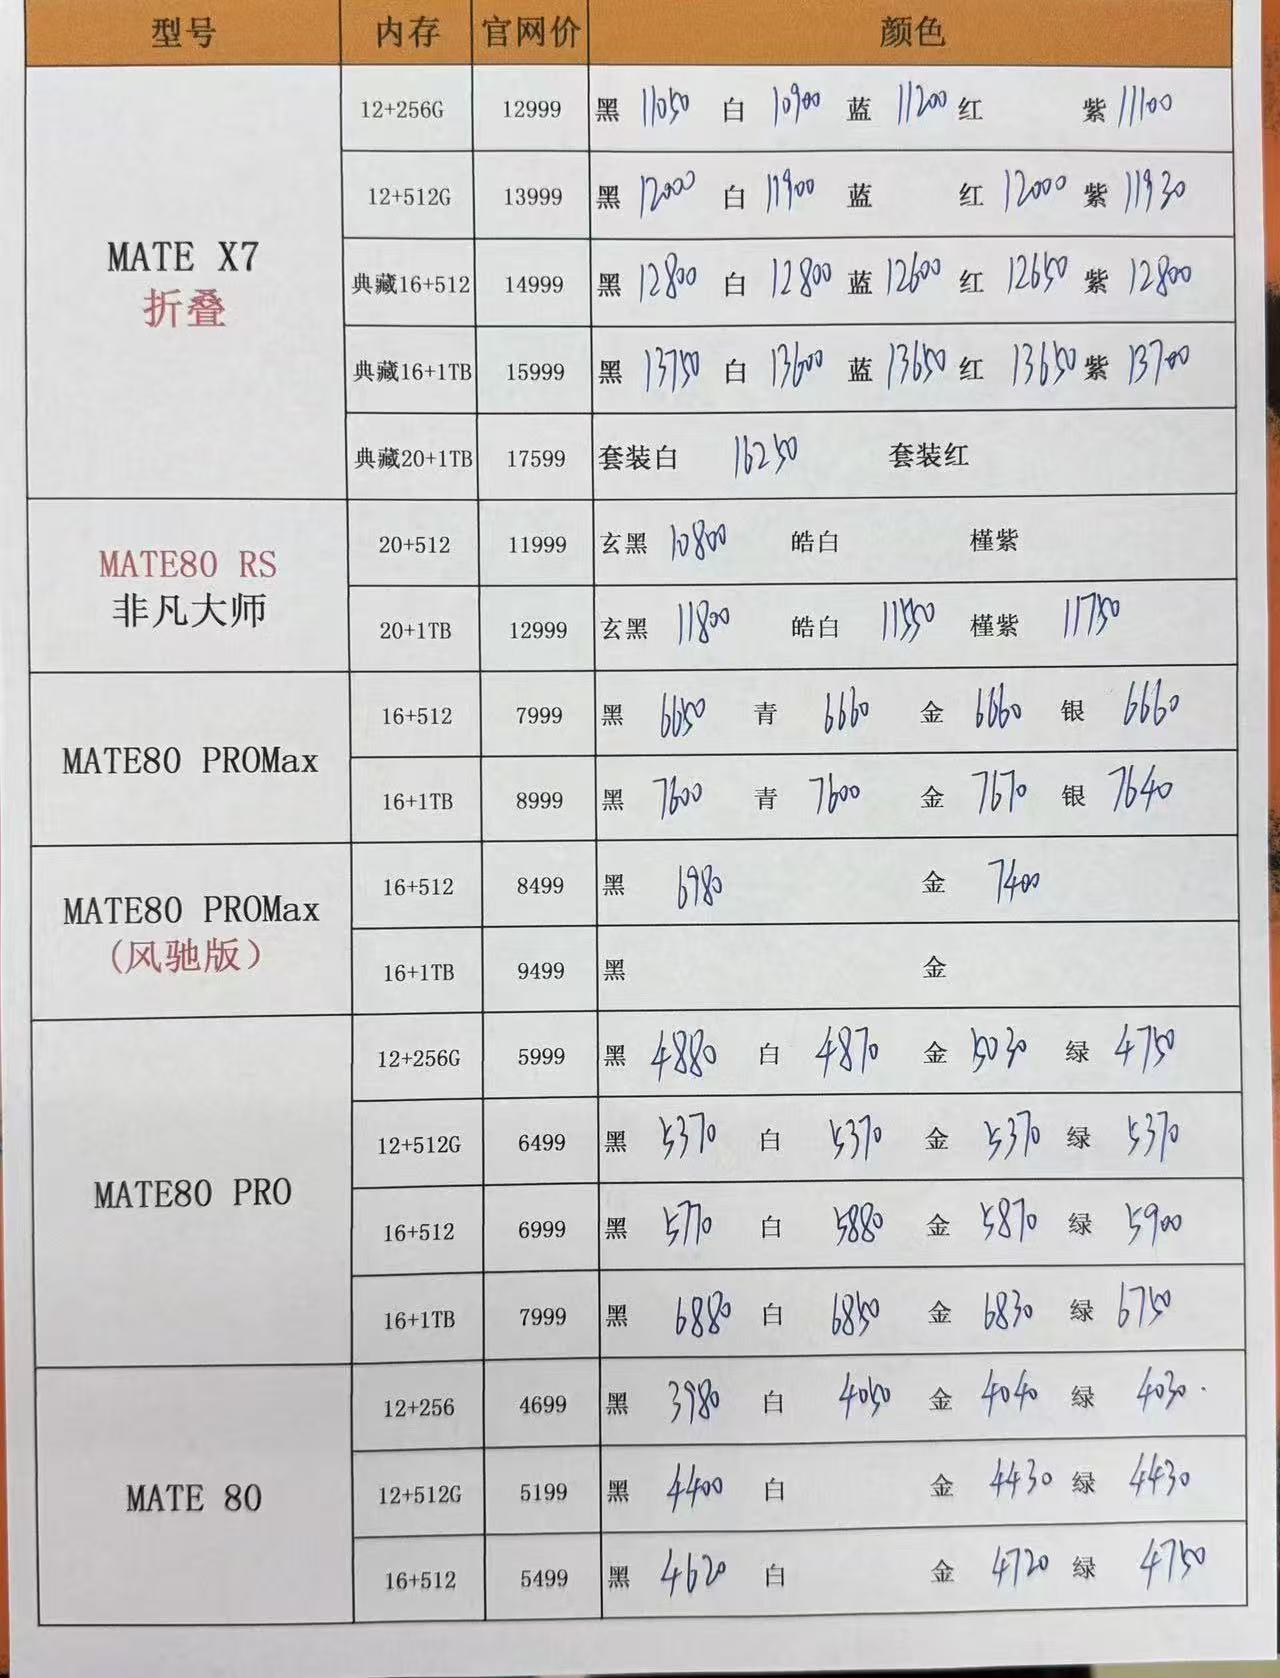 型号 内存 官网价 颜色
MATE X7
折叠
12+256G 12999 黑 11050 白 10900 蓝 11200 红 紫 11100
12+512G 13999 黑 12000 白 11900 蓝 红 12000 紫 11930
典藏16+512 14999 黑 12800 白 12800 蓝 12600 红 12650 紫 12800
典藏16+1TB 15999 黑 13750 白 13600 蓝 13650 红 13650 紫 13700
典藏20+1TB 17599 套装白 16250 套装红
MATE80 RS
非凡大师
20+512 11999 玄黑 10800 皓白 槿紫
20+1TB 12999 玄黑 11800 皓白 11550 槿紫 11750
MATE80 PROMax
16+512 7999 黑 6650 青 6660 金 6660 银 6660
16+1TB 8999 黑 7600 青 7600 金 7670 银 7640
MATE80 PROMax
(风驰版)
16+512 8499 黑 6980 金 7400
16+1TB 9499 黑 金
MATE80 PRO
12+256G 5999 黑 4880 白 4870 金 5030 绿 4750
12+512G 6499 黑 5370 白 5370 金 5370 绿 5370
16+512 6999 黑 5770 白 5880 金 5870 绿 5900
16+1TB 7999 黑 6880 白 6850 金 6830 绿 6750
MATE 80
12+256 4699 黑 3980 白 4050 金 4040 绿 4030
12+512G 5199 黑 4400 白 金 4430 绿 4430
16+512 5499 黑 4620 白 金 4720 绿 4750